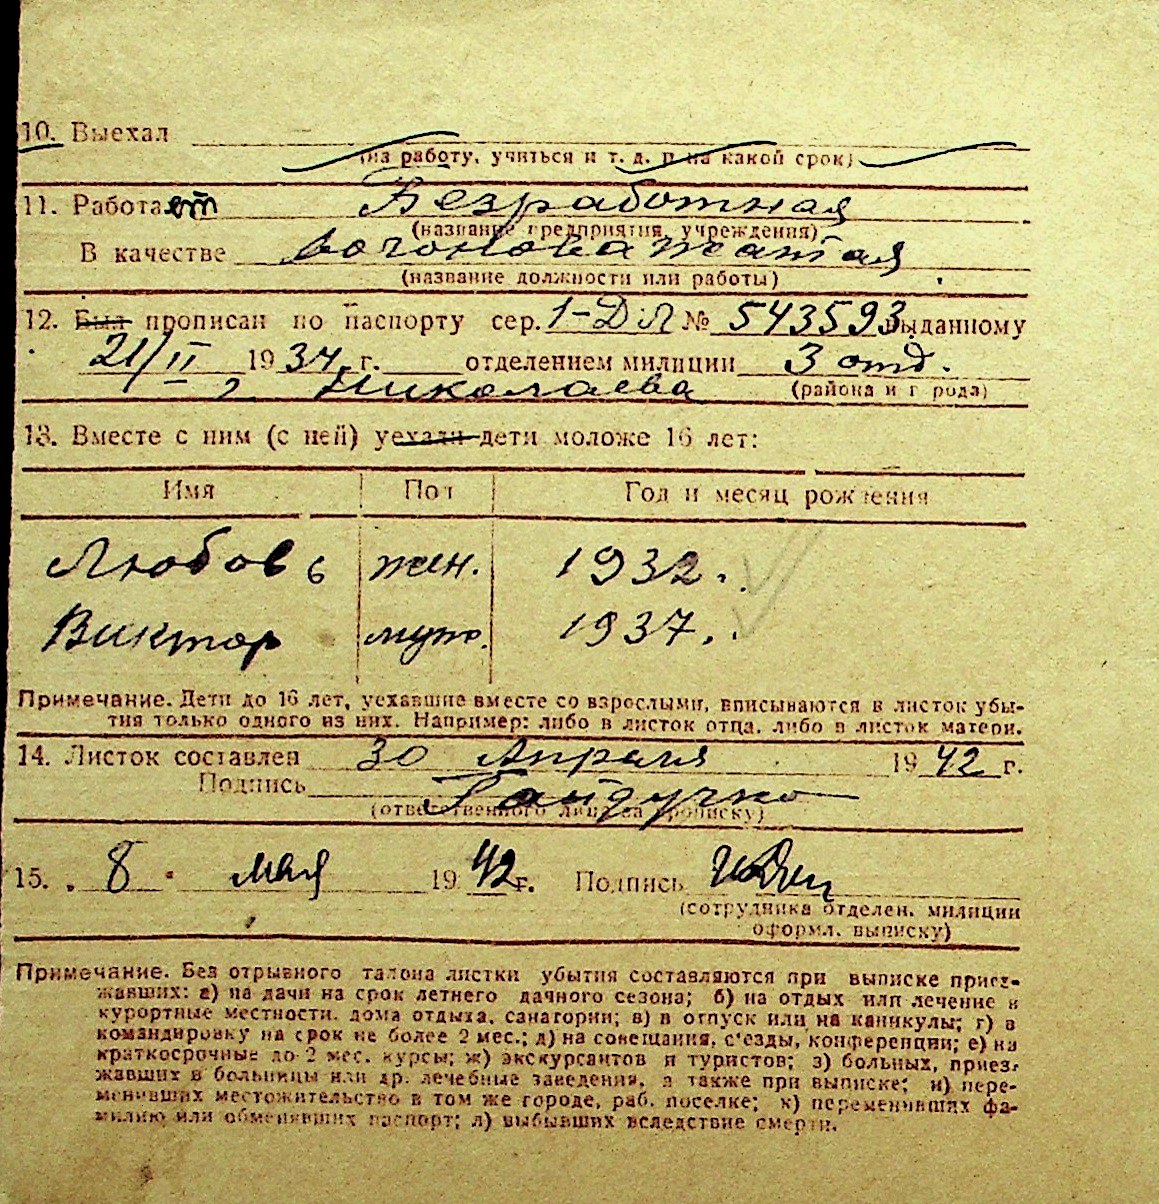 10. Выехал
(на работу, учиться и т. д. и на какой срок)
11. Работает Безработная
(название предприятия, учреждения)
В качестве вагоновожатая
(название должности или работы)
12. Был прописан по паспорту сер. 1-ДЛ № 543593 выданному
21/II 1934 г. отделением милиции 3 отд.
г. Николаева (района и города)
13. Вместе с ним (с ней) уехали дети моложе 16 лет:
Имя Пол Год и месяц рождения
Любовь жен. 1932.
Виктор муж. 1937.
Примечание. Дети до 16 лет, уехавшие вместе со взрослыми, вписываются в листок убы-
тия только одного из них. Например: либо в листок отца, либо в листок матери.
14. Листок составлен 30 Апреля 1942 г.
Подпись Гайдученко
(ответственного лица за прописку)
15. 8 мая 1942 г. Подпись
(сотрудника отделен. милиции
оформл. выписку)
Примечание. Без отрывного талона листки убытия составляются при выписке приез-
жавших: а) на дачи на срок летнего дачного сезона; б) на отдых или лечение в
курортные местности, дома отдыха, санатории; в) в отпуск или на каникулы; г) в
командировку на срок не более 2 мес.; д) на совещания, с'езды, конференции; е) на
краткосрочные до 2 мес. курсы; ж) экскурсантов и туристов; з) больных, приез-
жавших в больницы или др. лечебные заведения, а также при выписке; и) пере-
менивших местожительство в том же городе, раб. поселке; к) переменивших фа-
милию или обменявших паспорт; л) выбывших вследствие смерти.